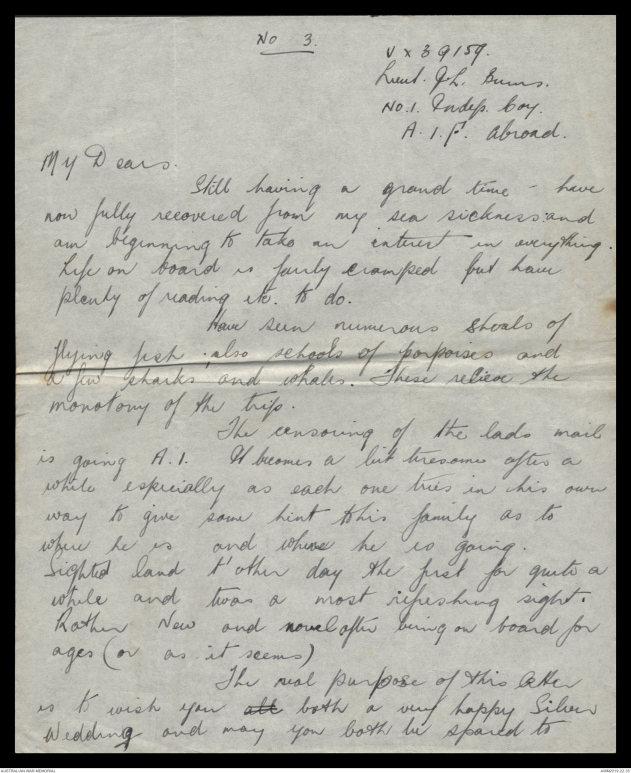 No 3.
VX39159.
Lieut. J. L. Burns.
No. 1. Indep. Coy.
A. I. F. Abroad.
My Dears.
Still having a grand time - have
now fully recovered from my sea sickness and
am beginning to take an interest in everything.
Life on board is fairly cramped but have
plenty of reading etc. to do.
Have seen numerous shoals of
flying fish; also schools of porpoises and
a few sharks and whales. These relieve the
monotony of the trip.
The censoring of the lads mail
is going A.1. It becomes a bit tiresome after a
while especially as each one tries in his own
way to give some hint to his family as to
where he is and where he is going.
Sighted land t'other day the first for quite a
while and twas a most refreshing sight.
Rather New and novel after being on board for
ages (or as it seems)
The real purpose of this letter
is to wish you all both a very happy Silver
Wedding and may you both be spared to
AUSTRALIAN WAR MEMORIAL